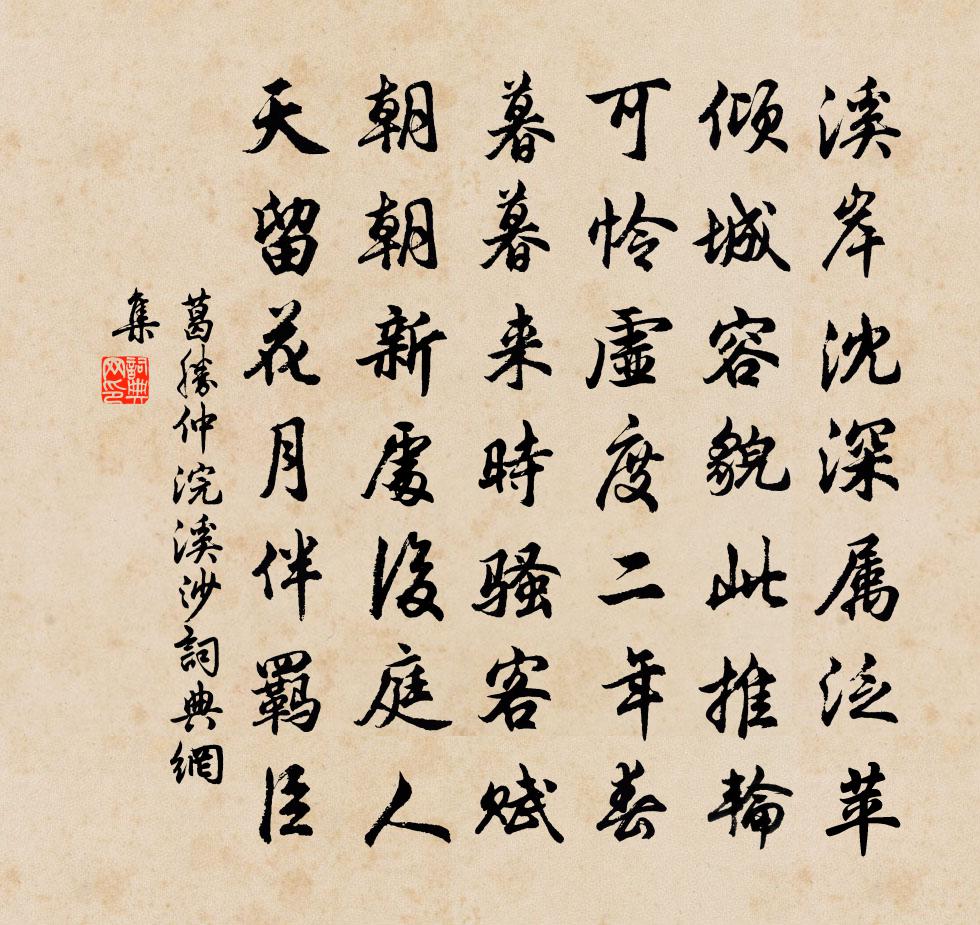 溪岸沈深属泛苹
倾城容貌此推輪
可怜虚度二年春
暮暮来時骚客赋
朝朝新處後庭人
天留花月伴羁臣
葛勝仲浣溪沙詞典網
集
詞典
网印